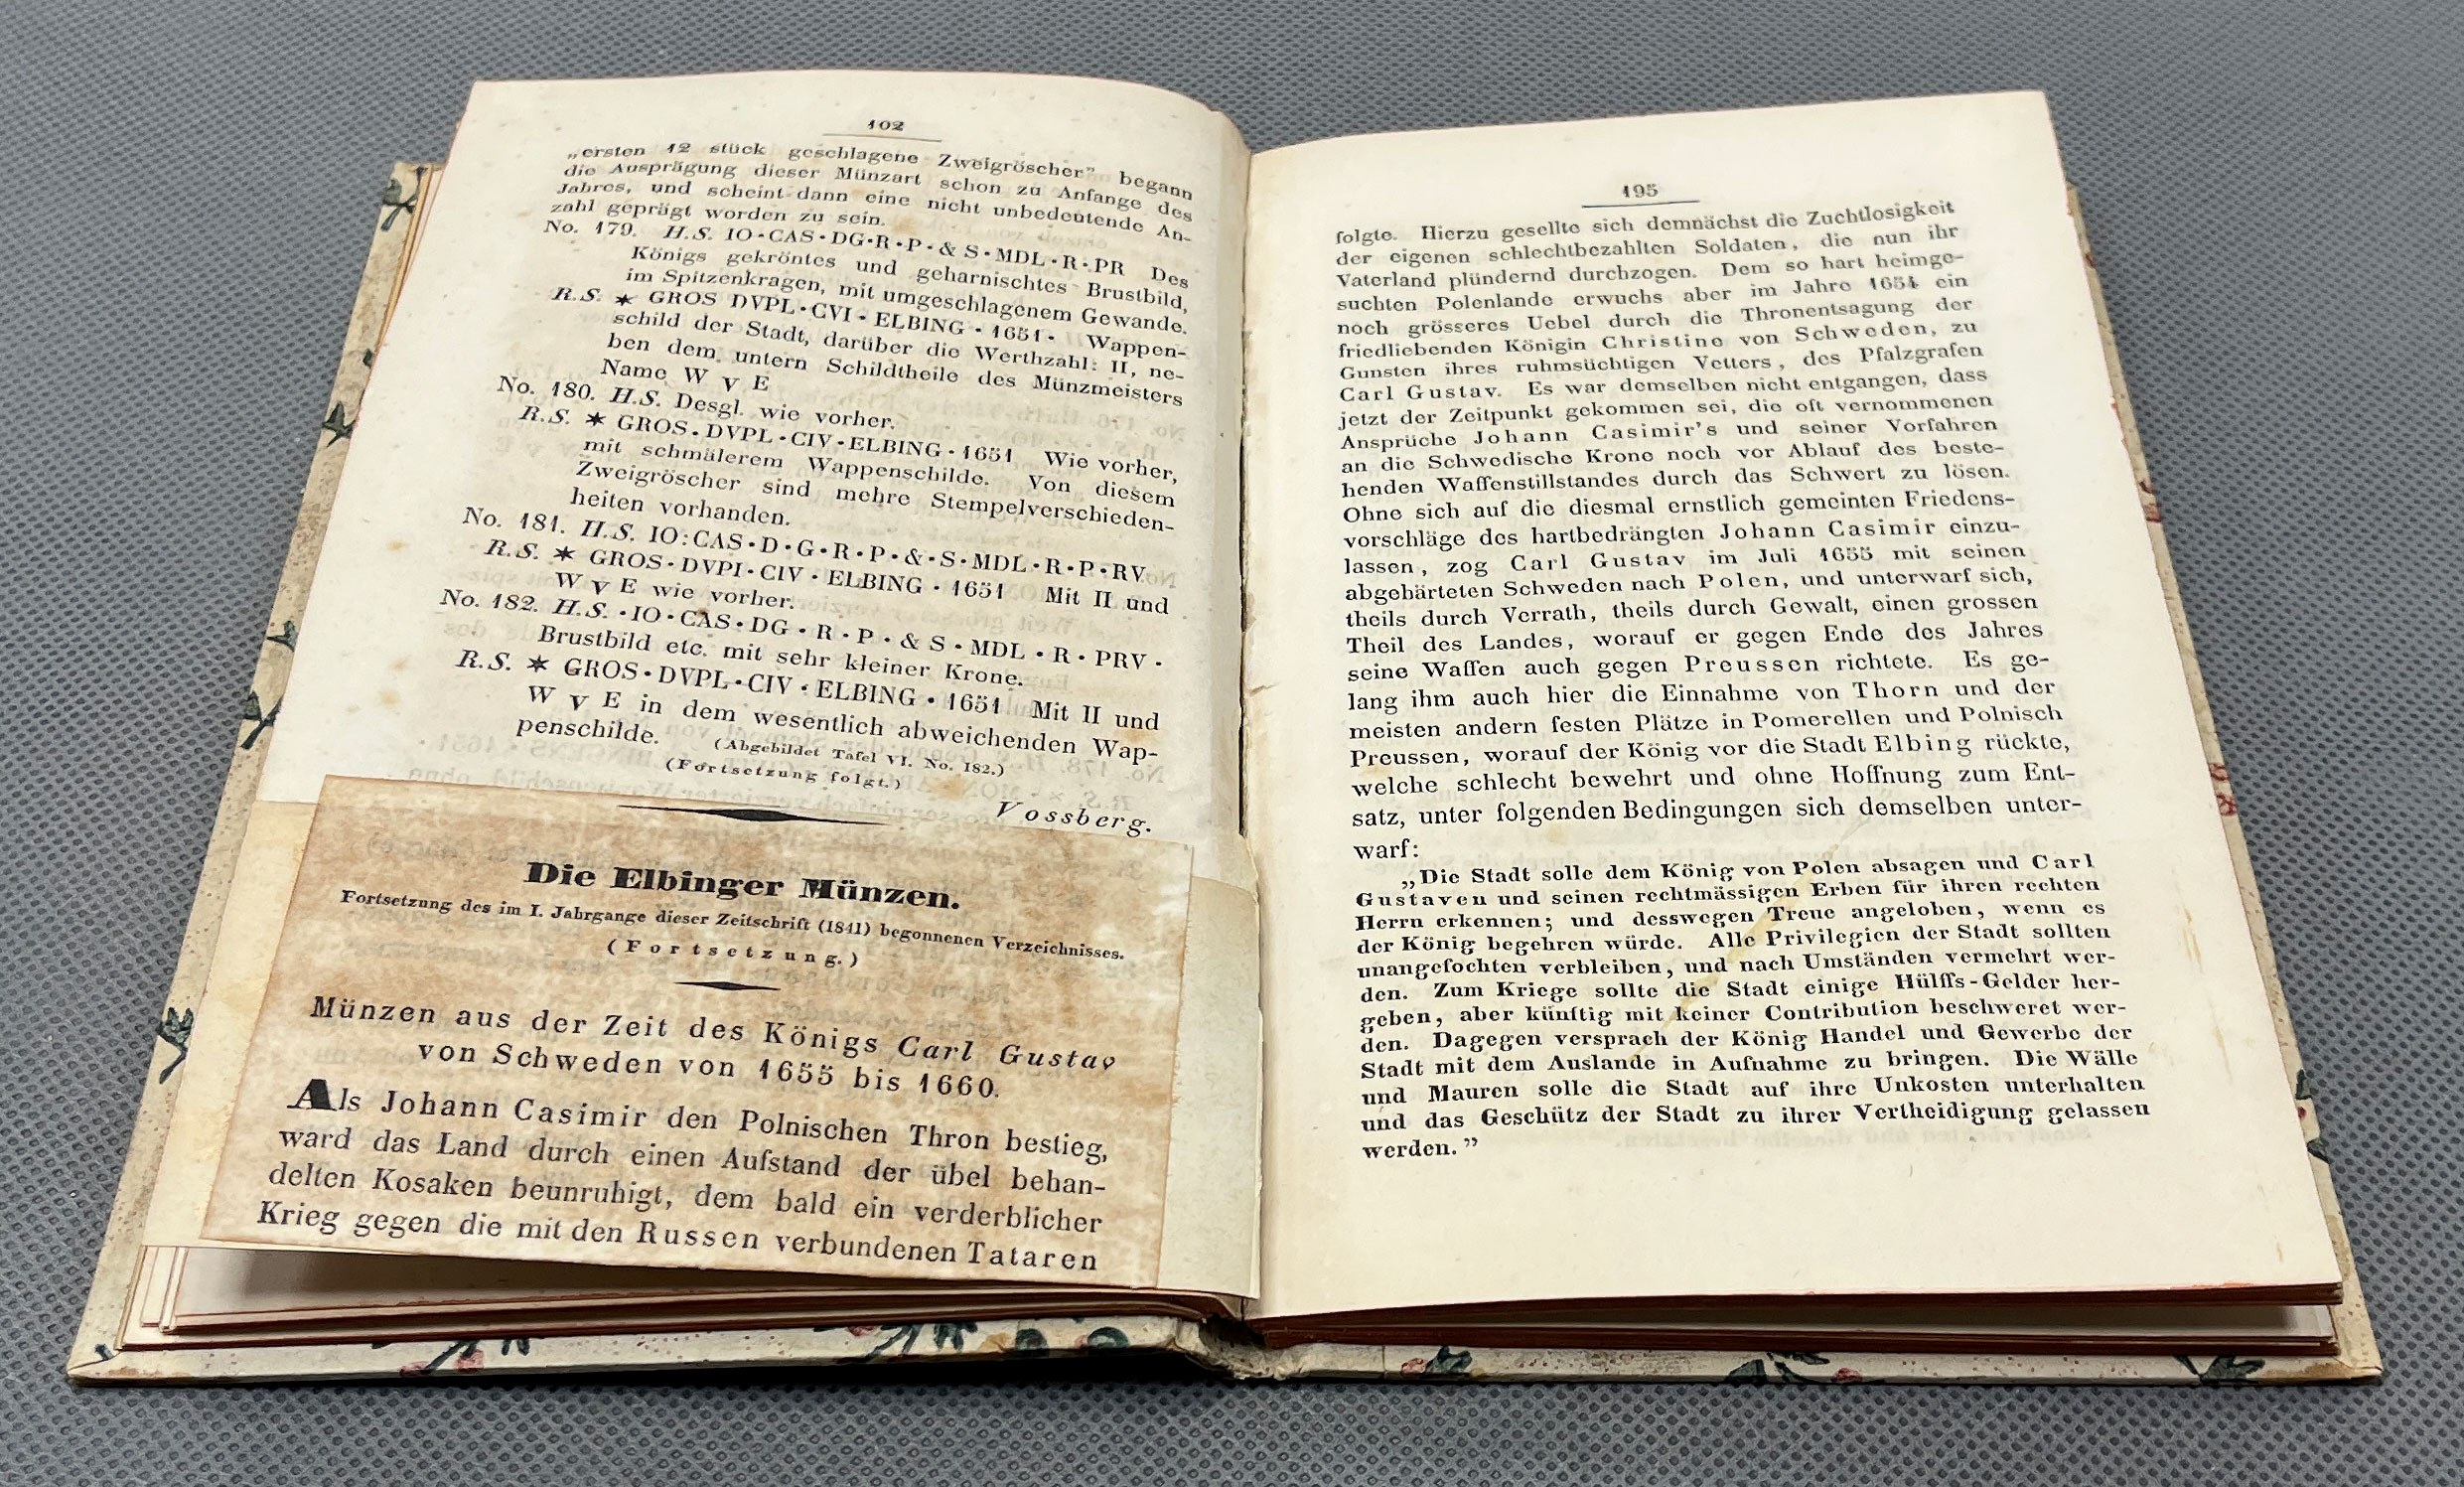 102
„ersten 12 stück geschlagene Zweigröscher” begann
die Ausprägung dieser Münzart schon zu Anfange des
Jahres, und scheint dann eine nicht unbedeutende An-
zahl geprägt worden zu sein.
No. 179. H.S. IO•CAS•DG•R•P•& S•MDL•R•PR Des
Königs gekröntes und geharnischtes Brustbild,
im Spitzenkragen, mit umgeschlagenem Gewande.
R.S. ✶ GROS DVPL•CVI•ELBING•1651• Wappen-
schild der Stadt, darüber die Werthzahl: II, ne-
ben dem untern Schildtheile des Münzmeisters
Name W v E
No. 180. H.S. Desgl. wie vorher.
R.S. ✶ GROS•DVPL•CIV•ELBING•1651 Wie vorher,
mit schmälerem Wappenschilde. Von diesem
Zweigröscher sind mehre Stempelverschieden-
heiten vorhanden.
No. 181. H.S. IO:CAS•D•G•R•P•&•S•MDL•R•P•RV
R.S. ✶ GROS•DVPI•CIV•ELBING•1651 Mit II und
W v E wie vorher.
No. 182. H.S. •IO•CAS•DG•R•P•& S•MDL•R•PRV•
Brustbild etc. mit sehr kleiner Krone.
R.S. ✶ GROS•DVPL•CIV•ELBING•1651 Mit II und
W v E in dem wesentlich abweichenden Wap-
penschilde. (Abgebildet Tafel VI. No. 182.)
(Fortsetzung folgt.)
Vossberg.
Die Elbinger Münzen.
Fortsetzung des im I. Jahrgange dieser Zeitschrift (1841) begonnenen Verzeichnisses.
(Fortsetzung.)
Münzen aus der Zeit des Königs Carl Gustav
von Schweden von 1655 bis 1660.
Als Johann Casimir den Polnischen Thron bestieg,
ward das Land durch einen Aufstand der übel behan-
delten Kosaken beunruhigt, dem bald ein verderblicher
Krieg gegen die mit den Russen verbundenen Tataren
195
folgte. Hierzu gesellte sich demnächst die Zuchtlosigkeit
der eigenen schlechtbezahlten Soldaten, die nun ihr
Vaterland plündernd durchzogen. Dem so hart heimge-
suchten Polenlande erwuchs aber im Jahre 1654 ein
noch grösseres Uebel durch die Thronentsagung der
friedliebenden Königin Christine von Schweden, zu
Gunsten ihres ruhmsüchtigen Vetters, des Pfalzgrafen
Carl Gustav. Es war demselben nicht entgangen, dass
jetzt der Zeitpunkt gekommen sei, die oft vernommenen
Ansprüche Johann Casimir's und seiner Vorfahren
an die Schwedische Krone noch vor Ablauf des beste-
henden Waffenstillstandes durch das Schwert zu lösen.
Ohne sich auf die diesmal ernstlich gemeinten Friedens-
vorschläge des hartbedrängten Johann Casimir einzu-
lassen, zog Carl Gustav im Juli 1655 mit seinen
abgehärteten Schweden nach Polen, und unterwarf sich,
theils durch Verrath, theils durch Gewalt, einen grossen
Theil des Landes, worauf er gegen Ende des Jahres
seine Waffen auch gegen Preussen richtete. Es ge-
lang ihm auch hier die Einnahme von Thorn und der
meisten andern festen Plätze in Pomerellen und Polnisch
Preussen, worauf der König vor die Stadt Elbing rückte,
welche schlecht bewehrt und ohne Hoffnung zum Ent-
satz, unter folgenden Bedingungen sich demselben unter-
warf:
„Die Stadt solle dem König von Polen absagen und Carl
Gustaven und seinen rechtmässigen Erben für ihren rechten
Herrn erkennen; und desswegen Treue angeloben, wenn es
der König begehren würde. Alle Privilegien der Stadt sollten
unangefochten verbleiben, und nach Umständen vermehrt wer-
den. Zum Kriege sollte die Stadt einige Hülffs-Gelder her-
geben, aber künftig mit keiner Contribution beschweret wer-
den. Dagegen versprach der König Handel und Gewerbe der
Stadt mit dem Auslande in Aufnahme zu bringen. Die Wälle
und Mauren solle die Stadt auf ihre Unkosten unterhalten
und das Geschütz der Stadt zu ihrer Vertheidigung gelassen
werden.”